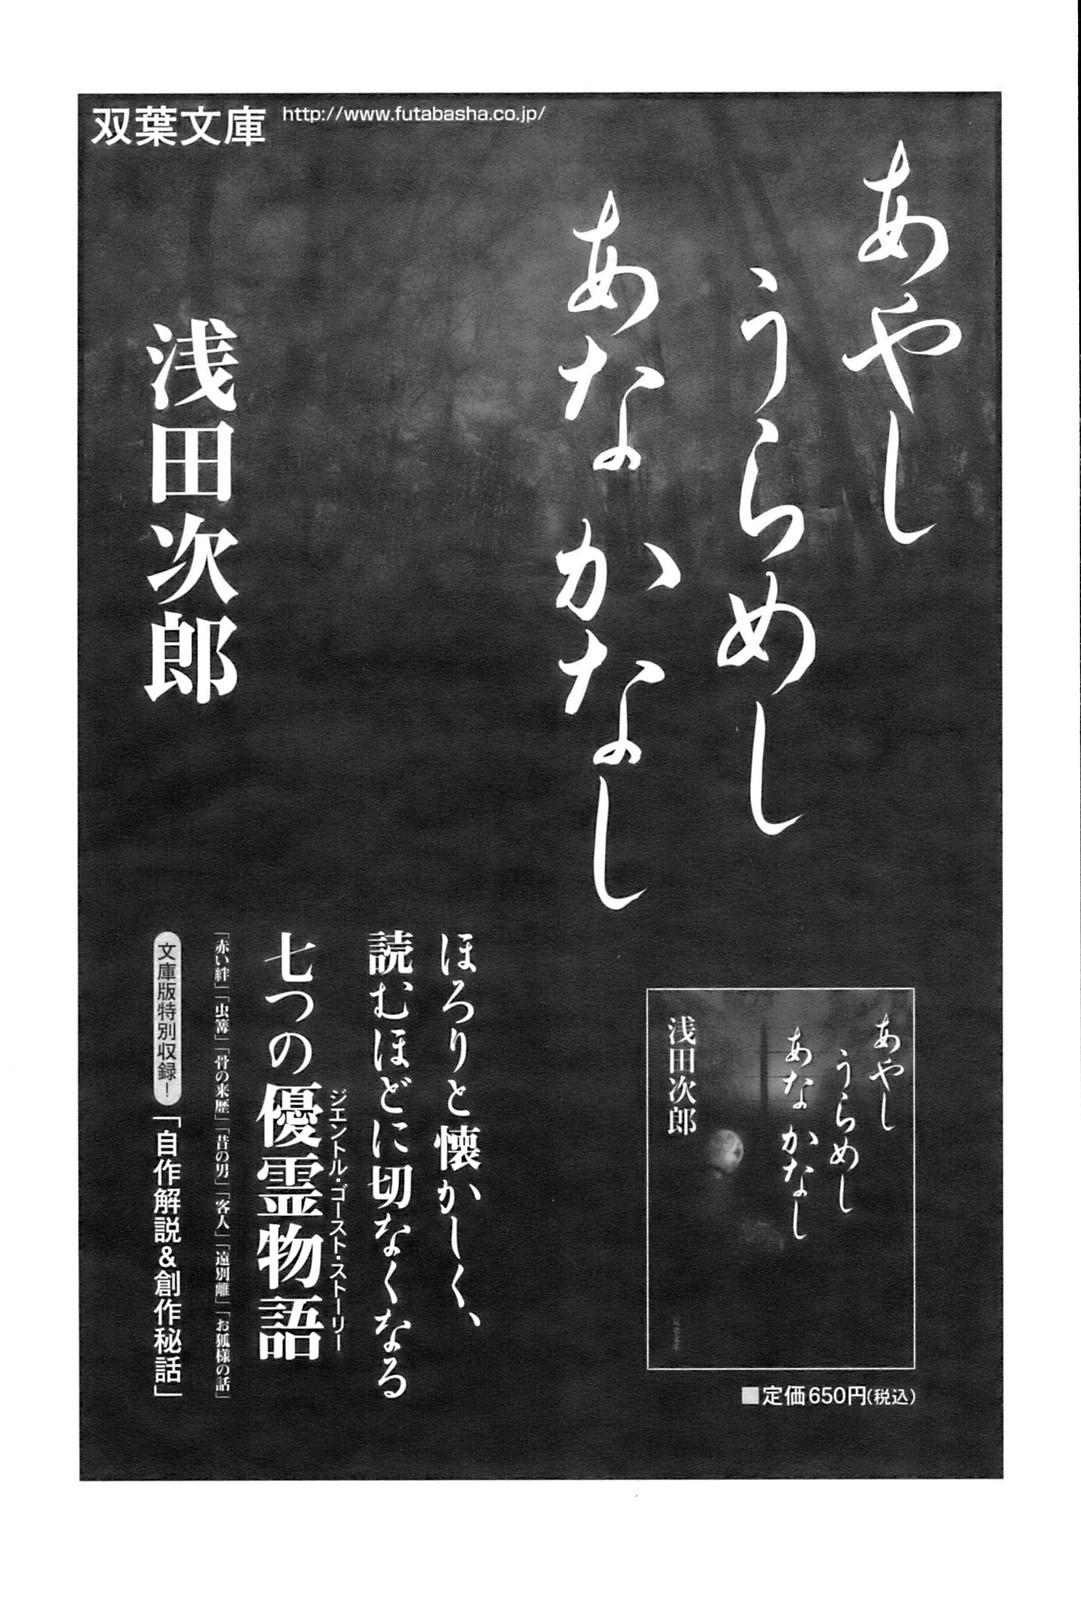 双葉文庫
http://www.futabasha.co.jp/
あやし
うらめし
あな かなし
浅田次郎
ほろりと懐かしく、
読むほどに切なくなる
七つの優霊物語
ジェントル・ゴースト・ストーリー
「赤い絆」「虫篝」「骨の来歴」「昔の男」「客人」「遠別離」「お狐様の話」
文庫版特別収録!
「自作解説&創作秘話」
あやし
うらめし
あな かなし
浅田次郎
双葉文庫
■定価650円(税込)